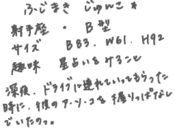 ふじまき じゅんこ*
射手座・B型
サイズ B83. W61. H92
趣味 星占いをすること
深夜、ドライブに連れていってもらった
時に、彼のア・ソ・コを握りっぱなし
でいたの。